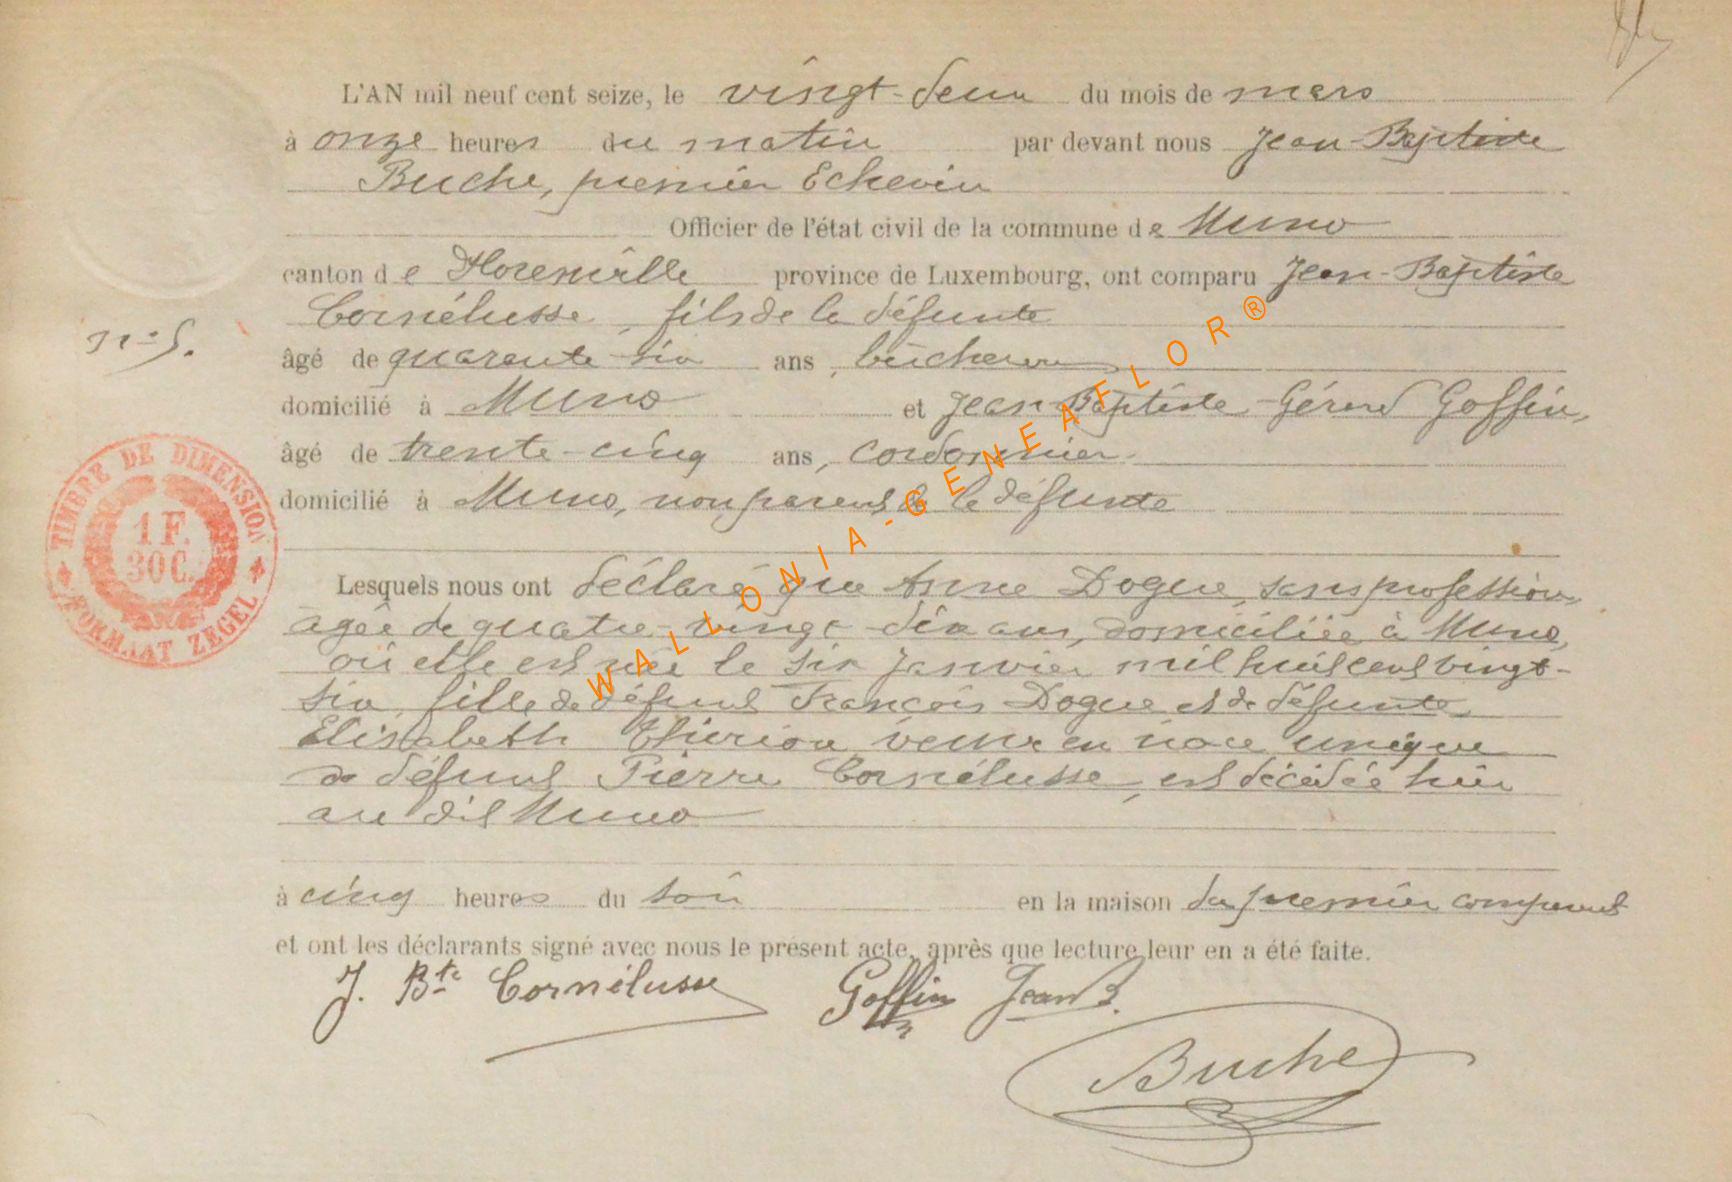 L'AN mil neuf cent seize, le vingt-deux du mois de mars
à onze heures du matin par devant nous Jean-Baptiste
Buche, premier Echevin
Officier de l'état civil de la commune de Muno
canton de Florenville province de Luxembourg, ont comparu Jean-Baptiste
Cornélusse, fils de la défunte
n° 5.
âgé de quarante-six ans, bûcheron
domicilié à Muno et Jean-Baptiste Gérard Goffin,
âgé de trente-cinq ans, cordonnier
domicilié à Muno, non parent de la défunte
TIMBRE DE DIMENSION
1 F.
30 C.
FORMAAT ZEGEL
Lesquels nous ont déclaré que Anne Dogue, sans profession,
âgée de quatre-vingt-dix ans, domiciliée à Muno,
où elle est née le six janvier mil huit cent vingt-
six, fille de défunt François Dogue et de défunte
Elisabeth Thirion veuve en noce unique
de défunt Pierre Cornélusse, est décédée hier
au dit Muno
à cinq heures du soir en la maison du premier comparant
et ont les déclarants signé avec nous le présent acte, après que lecture leur en a été faite.
J. Bte Cornélusse Goffin Jean B.
Buche
WALLONIA-GENEAFLOR®